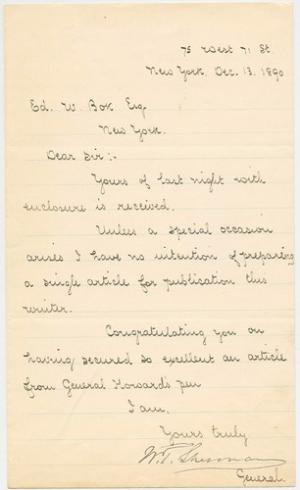 75 West 71 St.
New York, Dec. 13. 1890
Ed. W. Bok Esq.
New York.
Dear Sir:-
Yours of last night with
enclosure is received.
Unless a special occasion
arises I have no intention of preparing
a single article for publication this
winter.
Congratulating you on
having secured so excellent an article
from General Howard's pen
I am.
Yours truly
W. T. Sherman
General.